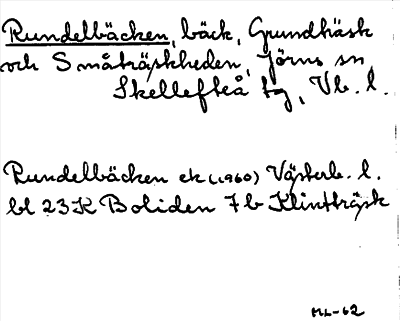 Rundelbäcken, bäck, Grundträsk
och Småträskheden, Jörns sn,
Skellefteå tg, Vb. l.
Rundelbäcken ek (1960) Västerb. l.
bl 23K Boliden 7b Klintträsk
ML-62